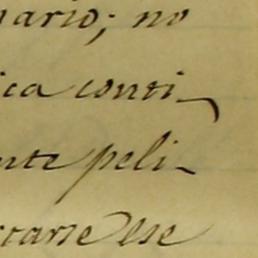 nario; no
ica conti-
nte peli-
tarse ese